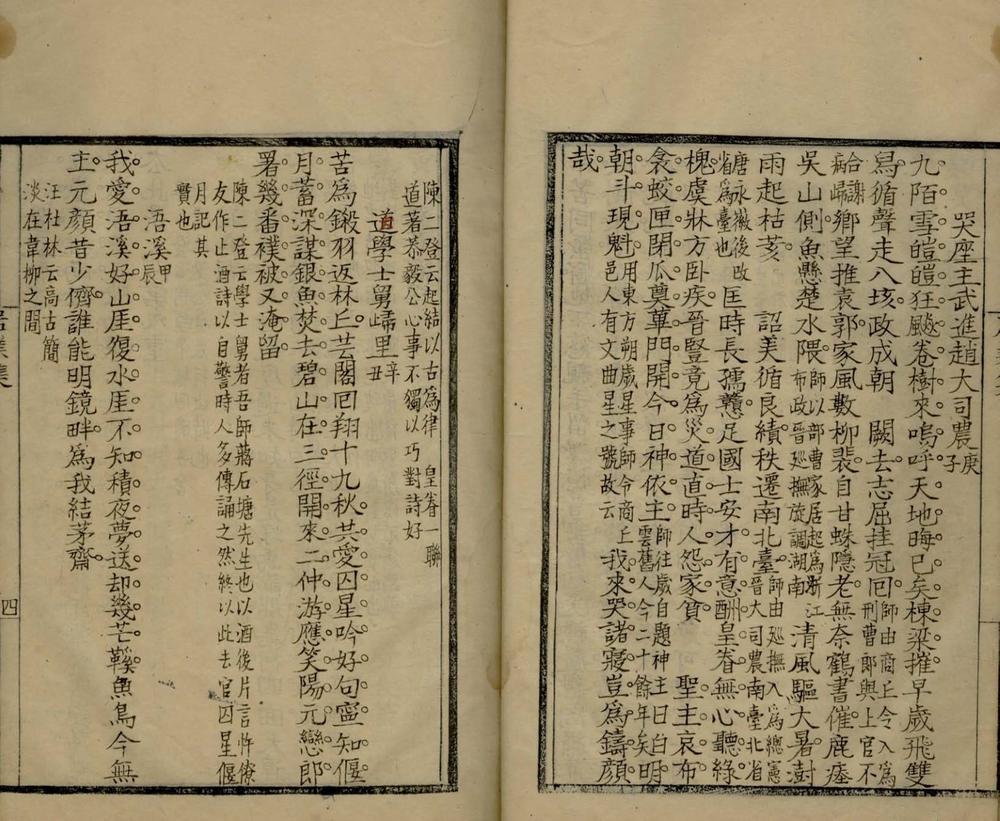 哭座主武進趙大司農庚子
九陌雪皚皚狂飈卷樹來嗚呼天地晦已矣棟梁摧早歲飛雙
舄循聲走八垓政成朝 闕去志屈挂冠囘師由商丘令入為刑曹郎與上官不
合謝病歸鄉望推袁郭家風數柳裴自甘蛛隱老無奈鶴書催鹿瘞
吳山側魚懸楚水隈師以部曹家居起為浙江布政晉廵撫旋調湖南 清風驅大暑澍
雨起枯荄 詔美循良績秩遷南北臺師由廵撫入為總憲晉大司農南臺北省
唐永徽後改省為臺也 匡時長孺戇足國士安才有意酬皇眷無心聽綠
槐虞牀方卧疾晉豎竟為災道直時人怨家貧 聖主哀布
衾蛟匣閉瓜奠蓽門開今日神依主師往歲自題神主曰白雲舊人今二十餘年矣明
朝斗現魁用東方朔歲星事師令商丘邑人有文曲星之號故云 我來哭諸寢豈為鑄顏
哉
陳二登云起結以古為律 皇眷一聯
道著恭毅公心事不獨以巧對詩好
道學士舅歸里辛丑
苦為鍛羽返林丘芸閣囘翔十九秋共愛囚星吟好句寧知偃
月蓄深謀銀魚焚去碧山在三徑開來二仲游應笑陽元戀郎
署幾番襆被又淹留
陳二登云學士舅者吾師蔣石塘先生也以酒後片言忤僚
友作止酒詩以自警時人多傳誦之然終以此去官囚星偃
月記其
實也
浯溪甲辰
我愛浯溪好山厓復水厓不知積夜夢送却幾芒鞵魚鳥今無
主元顏昔少儕誰能明鏡畔為我結茅齋
汪杜林云高古簡
淡在韋柳之間
四